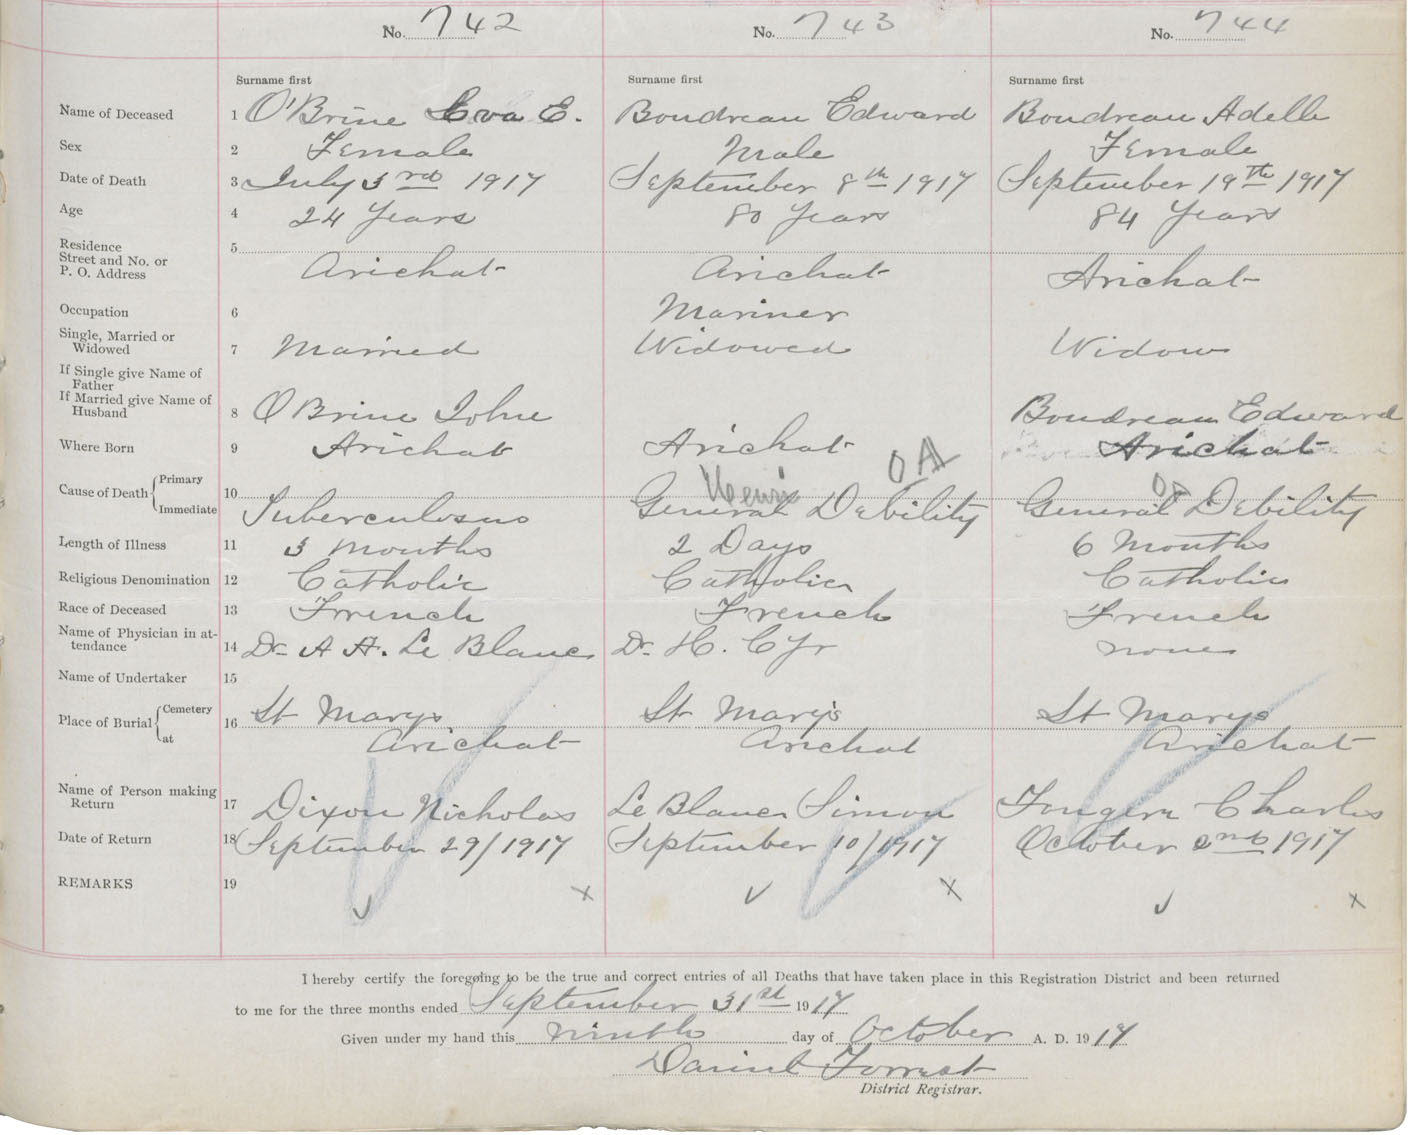 No. 742 No. 743 No. 744
Surname first Surname first Surname first
Name of Deceased 1 O'Brine Eva E. Boudreau Edward Boudreau Adelle
Sex 2 Female Male Female
Date of Death 3 July 3rd 1917 September 8th 1917 September 19th 1917
Age 4 24 Years 80 Years 84 Years
Residence
Street and No. or 5
P. O. Address Arichat Arichat Arichat
Occupation 6 Mariner
Single, Married or
Widowed 7 Married Widowed Widow
If Single give Name of
Father
If Married give Name of
Husband 8 O'Brine John Boudreau Edward
Where Born 9 Arichat Arichat Arichat
OA
Cause of Death { Primary 10 OA
Immediate Tuberculosus General Debility General Debility
Length of Illness 11 3 months 2 Days 6 Months
Religious Denomination 12 Catholic Catholic Catholic
Race of Deceased 13 French French French
Name of Physician in at-
tendance 14 Dr A A. Le Blanc Dr. H. Cyr none
Name of Undertaker 15
Place of Burial { Cemetery 16 St Marys St Mary's St Marys
at Arichat Arichat Arichat
Name of Person making
Return 17 Dixon Nicholas Le Blanc Simon Fougere Charles
Date of Return 18 September 29/1917 September 10/1917 October 2nd 1917
REMARKS 19 x x x
I hereby certify the foregoing to be the true and correct entries of all Deaths that have taken place in this Registration District and been returned
to me for the three months ended September 31st 1917
Given under my hand this ninth day of October A. D. 1917
Daniel Forrest
District Registrar.